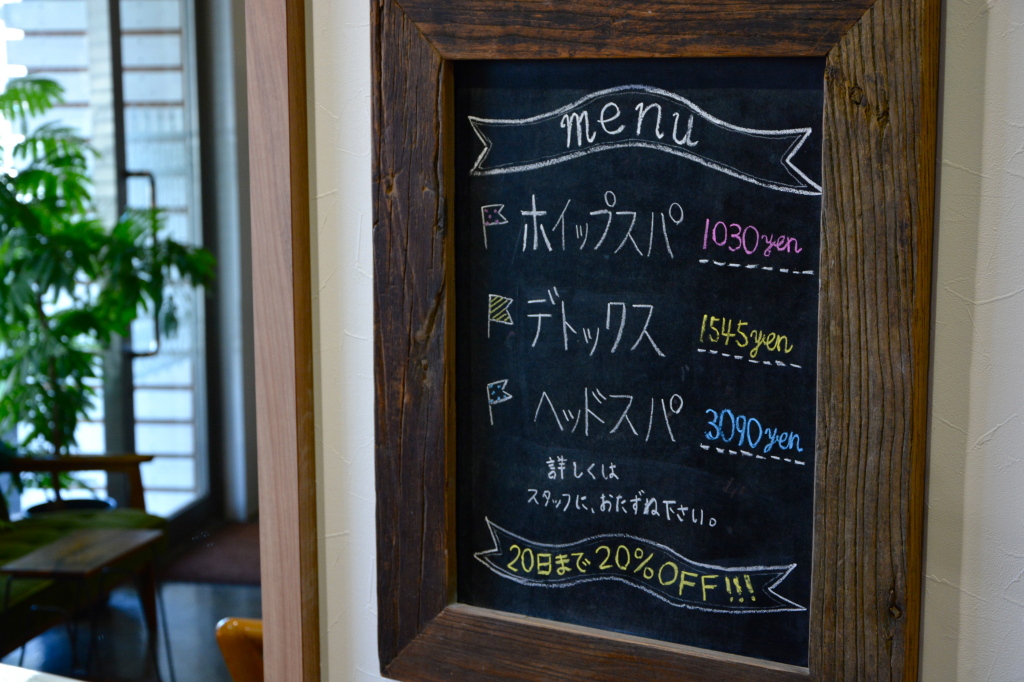 menu
ホイップスパ 1030yen
デトックス 1545yen
ヘッドスパ 3090yen
詳しくは
スタッフに、おたずね下さい。
20日まで 20%OFF!!!